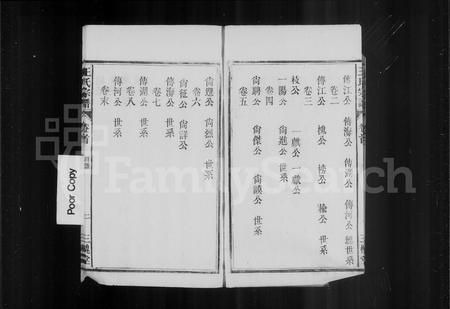 傳江公 傳海公 傳湖公 傳河公 總世系
卷二
傳江公 槐公 榜公 檜公 世系
卷三
枝公 一獻公 一獻公
一陽公 尙進公 世系
卷四
尙聘公 尙傑公 尙謨公 世系
卷五
尙選公 尙德公 世系
卷六
尙征公 尙詳公
傳海公 世系
卷七
傳湖公 世系
卷八
傳河公 世系
卷末
王氏宗譜
卷首
目錄
二
三槐堂
Poor Copy
FamilySearch